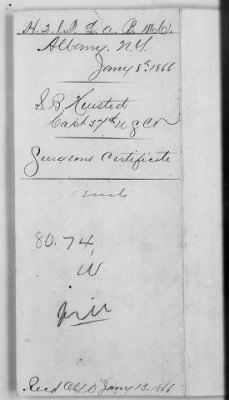 Albany, N.Y.
Jany 8th 1866
S. B. Husted
Capt 37th U S C T
Surgeons Certificate
1 encl
80. 74
W
Recd Jany 13. 1866